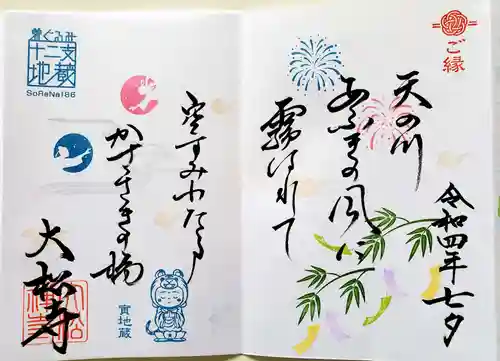 ご縁
天の川
あふぎの風に
霧はれて
令和四年七夕
空すみわたる
かささぎの橋
大松寺
着ぐるみ
十二支
地蔵
SoRaNa186
寅地蔵